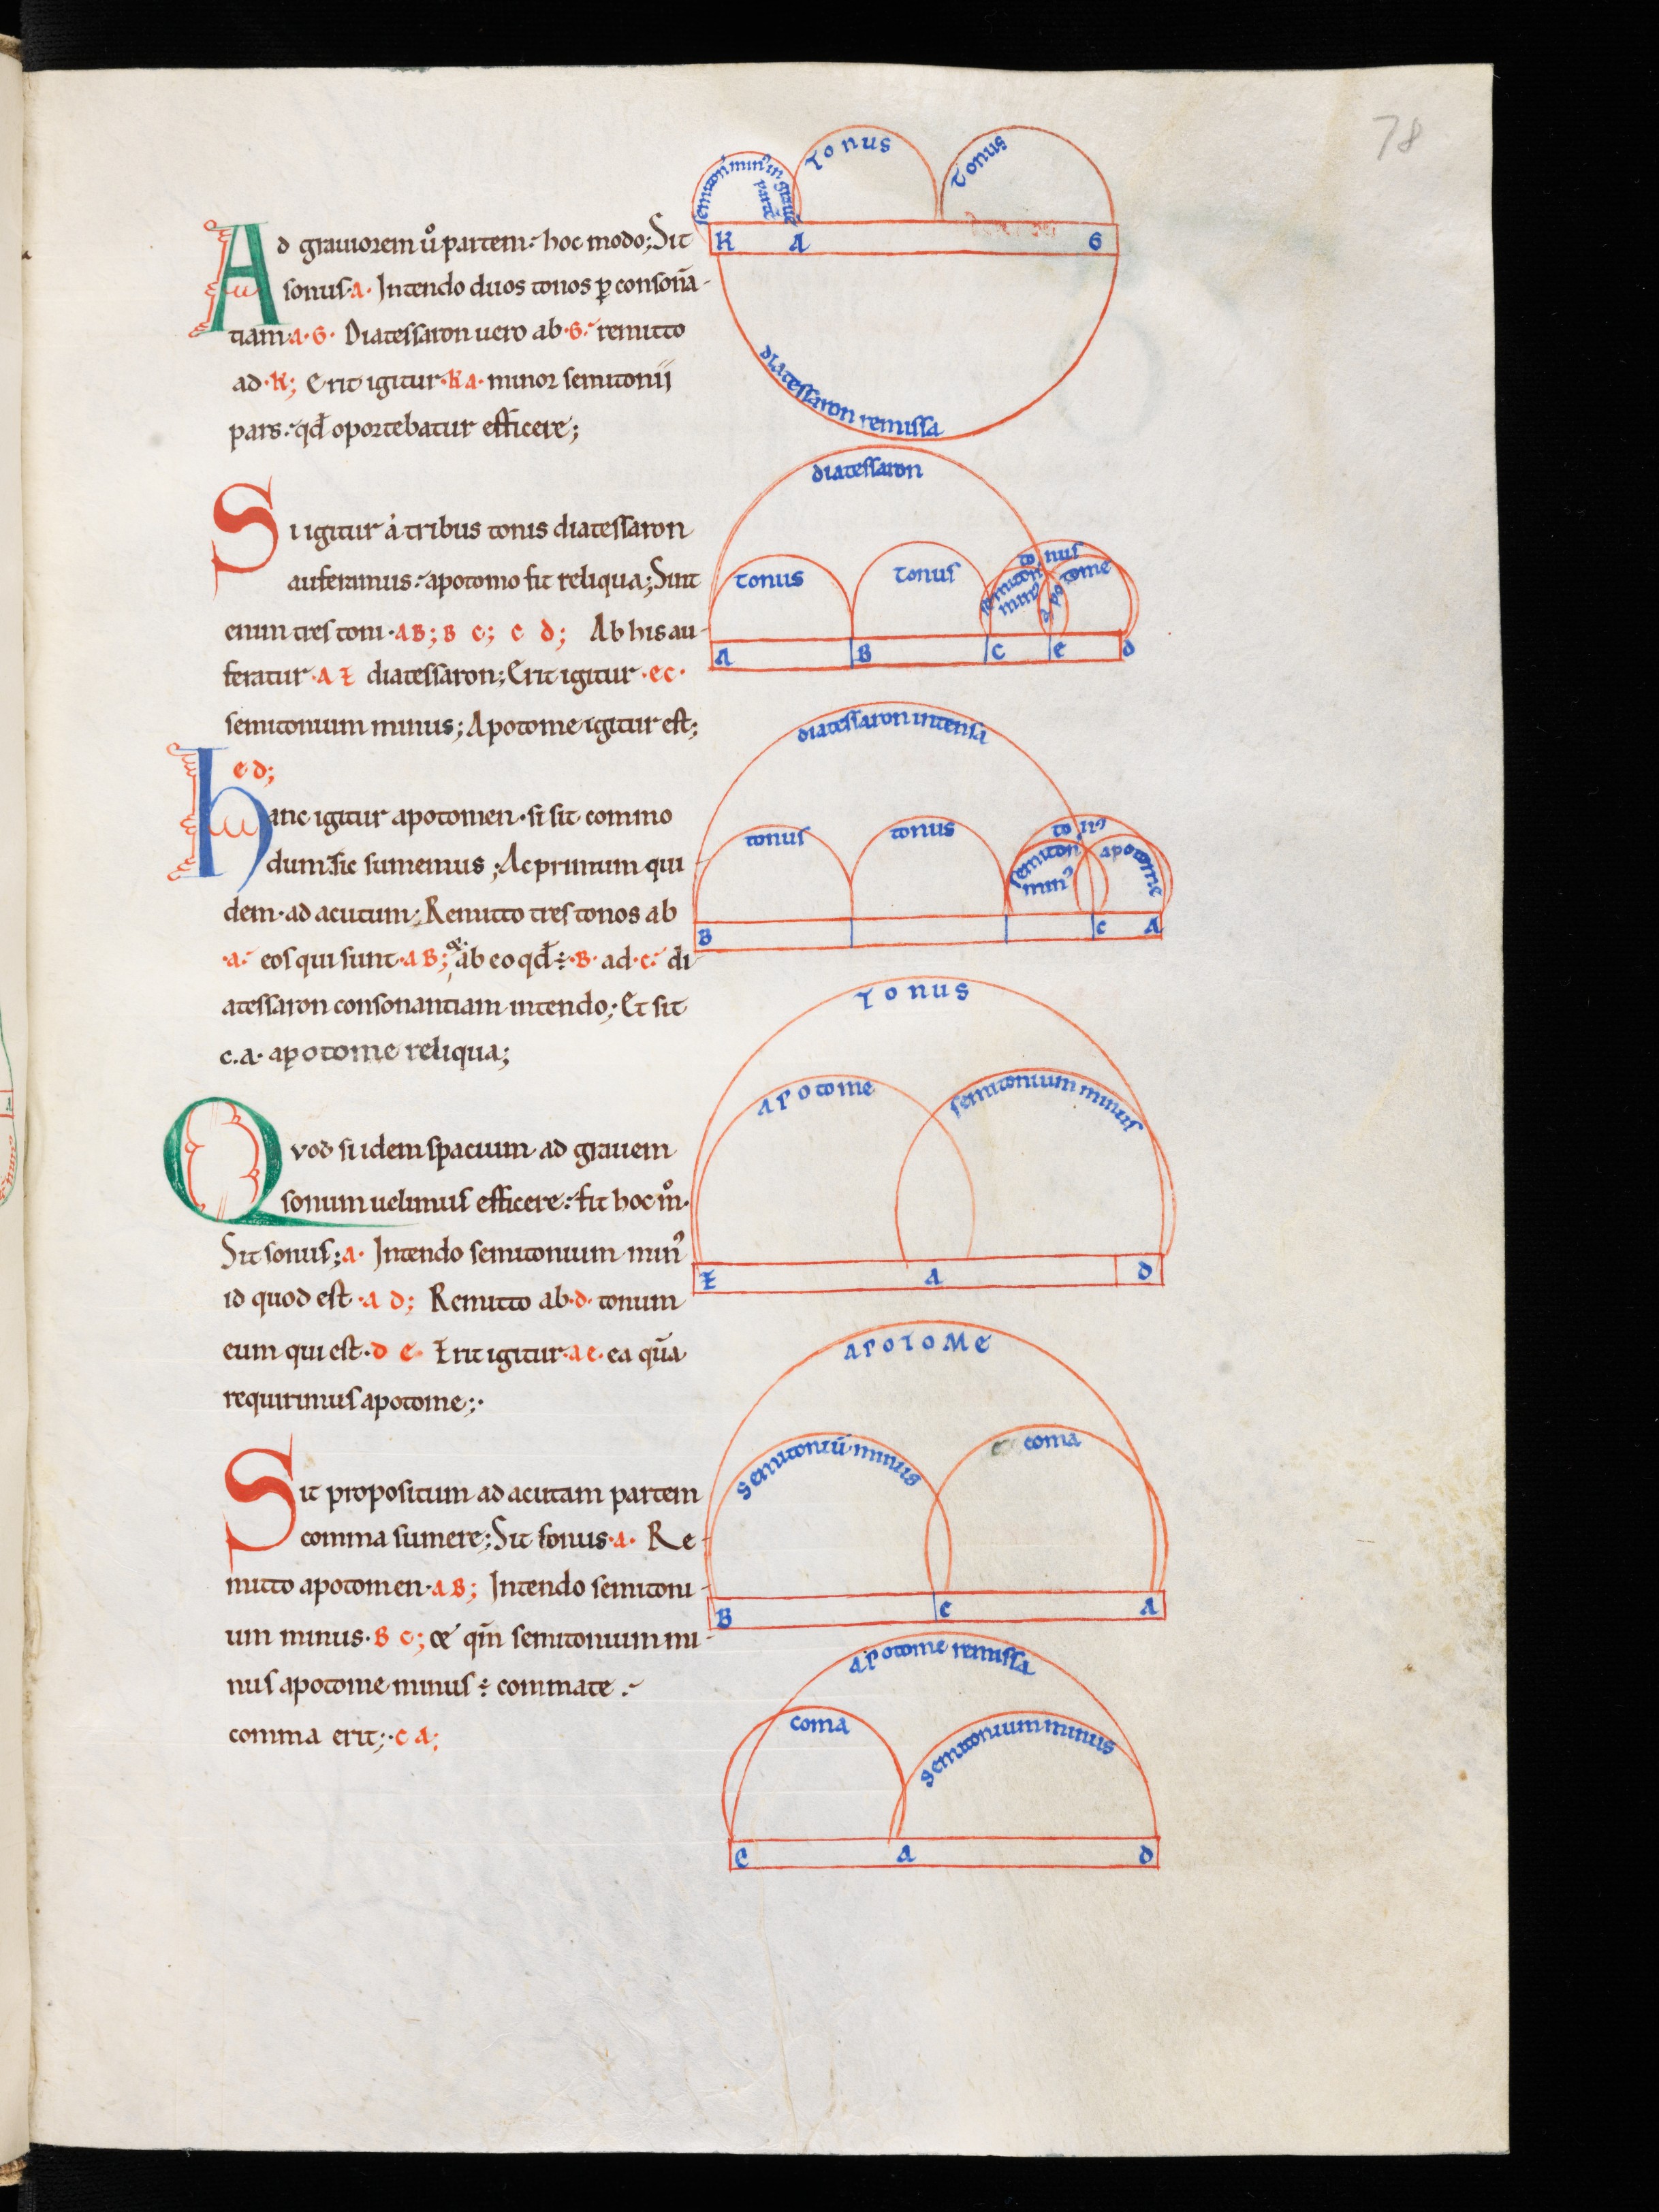 78
Ad grauiorem u͛o partem: hoc modo; Sit
sonus·a· Intendo duos tonos ꝑ consonā-
tiam·a·G· Diatessaron uero ab·G· remitto
ad·K; Erit igitur·Ka· minor semitonij
pars: qđ oportebatur efficere;
Si igitur à tribus tonis diatessaron
auferamus: apotome fit reliqua; Sint
enim tres toni·AB; B C; C D; Ab his au-
feratur·A E diatessaron; Erit igitur·EC·
semitonium minus; Apotome igitur est;
ED;
hanc igitur apotomen·si sit commo
dum sic sumemus; Ac primum qui
dem·ad acutum: Remitto tres tonos ab
·a· eos qui sunt·AB; & ab eo qđ ÷·B· ad·C· di-
atessaron consonantiam intendo; Et sit
c.a· apotome reliqua;
Qvod si idem spacium ad grauem
sonum uelimus efficere: fit hoc mͦ·
Sit sonus; a· Intendo semitonium minꝰ
id quod est·a d; Remitto ab·d· tonum
eum qui est·d e· Erit igitur·ae· ea quā
requirimus apotome;·
Sit propositum ad acutam partem
comma sumere; Sit sonus·a· Re-
mitto apotomen·AB; Intendo semitoni-
um minus·B C; & qm̄ semitonium mi-
nus apotome minus ÷ commate:
comma erit;·C A;
semiton minꝰ in grauē partē
Tonus
Tonus
K A G
diatessaron remissa
diatessaron
tonus
Tonus
tonus
semiton minꝰ
apotome
A B C E D
diatessaron intensa
tonus
tonus
tonꝰ
semiton minꝰ
apotome
B C A
Tonus
Apotome
semitonium minus
E A D
APOTOME
Semitoniū minus
coma
B C A
Apotome remissa
coma
Semitonium minus
C A D